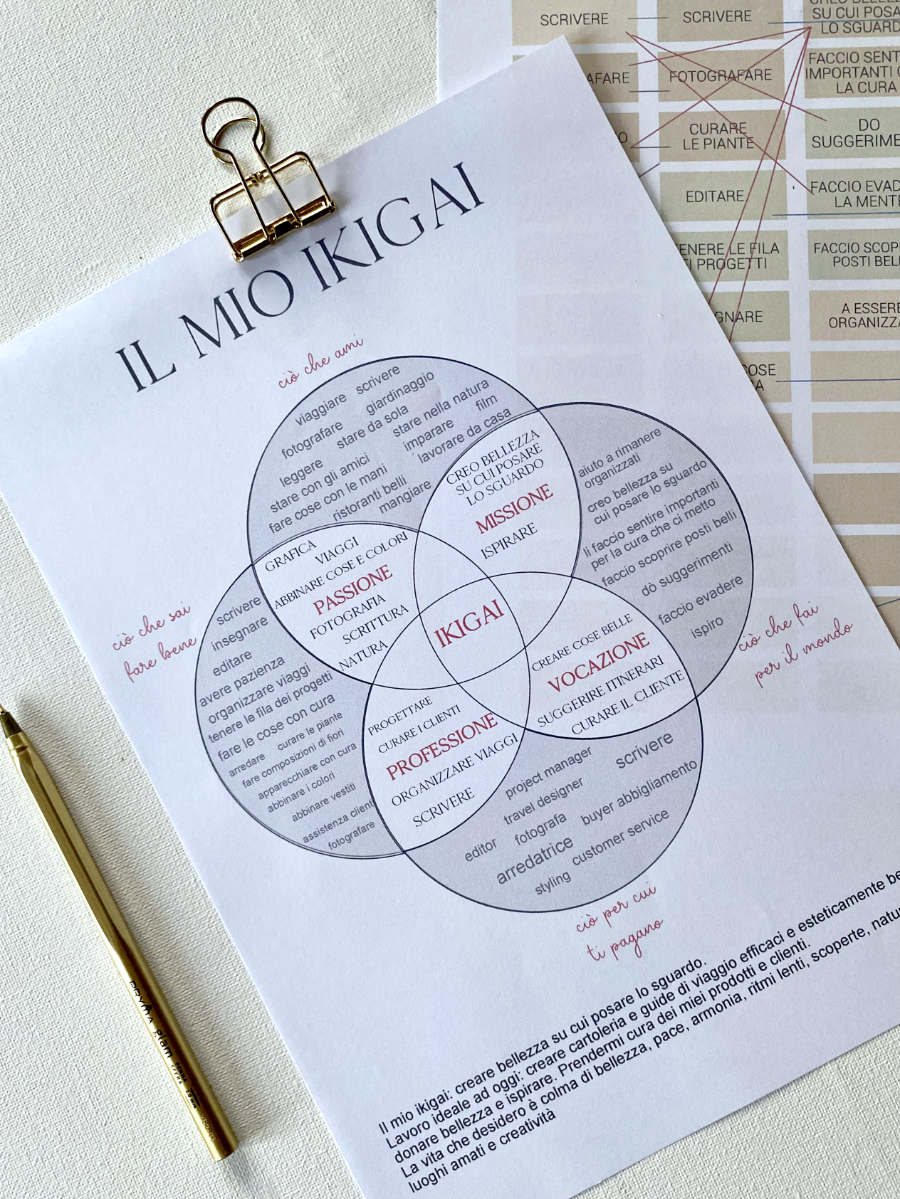 SCRIVERE
SCRIVERE
SU CUI POSA
LO SGUARD
AFARE
FOTOGRAFARE
FACCIO SENT
IMPORTANTI
LA CURA
CURARE
LE PIANTE
DO
SUGGERIME
EDITARE
FACCIO EVAD
LA MENTE
TENERE LE FILA
PROGETTI
FACCIO SCOP
POSTI BEL
GNARE
A ESSERE
ORGANIZZA
COSE
IL MIO IKIGAI
ciò che ami
viaggiare scrivere
fotografare giardinaggio
leggere stare da sola
stare nella natura
stare con gli amici imparare film
fare cose con le mani lavorare da casa
ristoranti belli
mangiare
CREO BELLEZZA
SU CUI POSARE
LO SGUARDO
MISSIONE
ISPIRARE
aiuto a rimanere
organizzati
creo bellezza su
cui posare lo sguardo
li faccio sentire importanti
per la cura che ci metto
faccio scoprire posti belli
dò suggerimenti
faccio evadere
ispiro
ciò che fai
per il mondo
GRAFICA
VIAGGI
ABBINARE COSE E COLORI
PASSIONE
FOTOGRAFIA
SCRITTURA
NATURA
IKIGAI
ciò che sai
fare bene
scrivere
insegnare
editare
avere pazienza
organizzare viaggi
tenere le fila dei progetti
fare le cose con cura
arredare curare le piante
fare composizioni di fiori
apparecchiare con cura
abbinare i colori
abbinare vestiti
assistenza clienti
fotografare
CREARE COSE BELLE
VOCAZIONE
SUGGERIRE ITINERARI
CURARE IL CLIENTE
PROGETTARE
CURARE I CLIENTI
PROFESSIONE
ORGANIZZARE VIAGGI
SCRIVERE
project manager scrivere
travel designer
editor fotografa buyer abbigliamento
arredatrice customer service
styling
ciò per cui
ti pagano
Il mio ikigai: creare bellezza su cui posare lo sguardo.
Lavoro ideale ad oggi: creare cartoleria e guide di viaggio efficaci e esteticamente be
donare bellezza e ispirare. Prendermi cura dei miei prodotti e clienti.
La vita che desidero è colma di bellezza, pace, armonia, ritmi lenti, scoperte, natu
luoghi amati e creatività